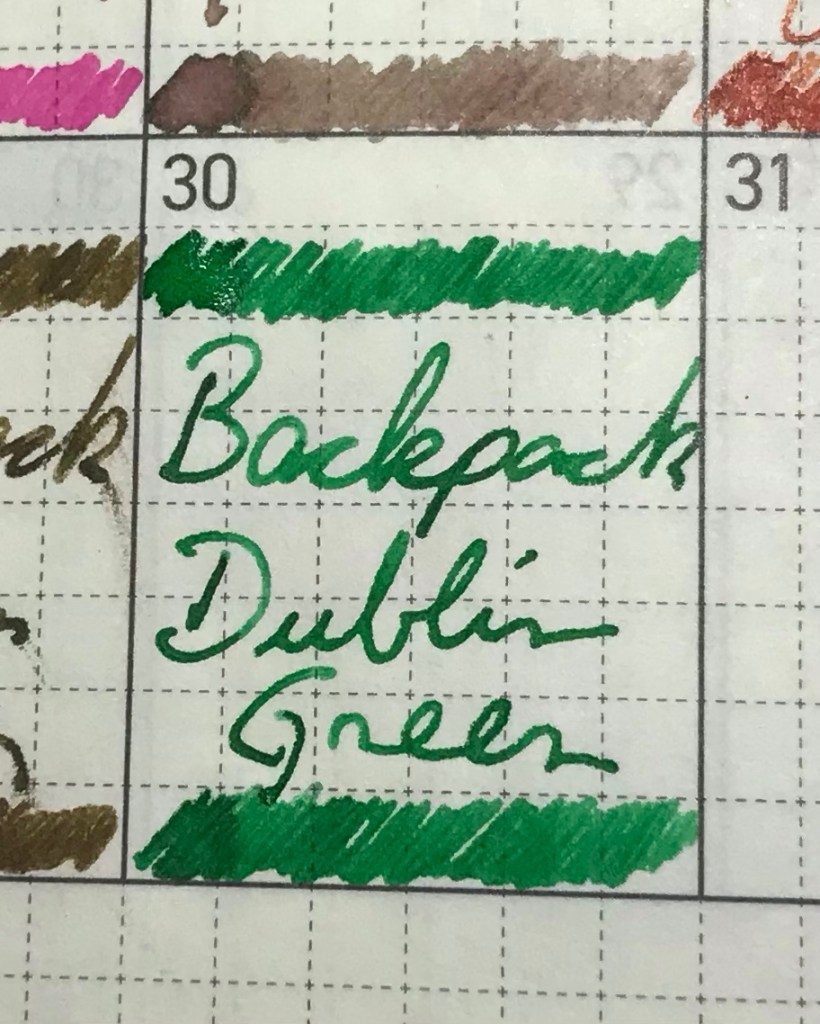 30
31
Backpack
Dublin
Green